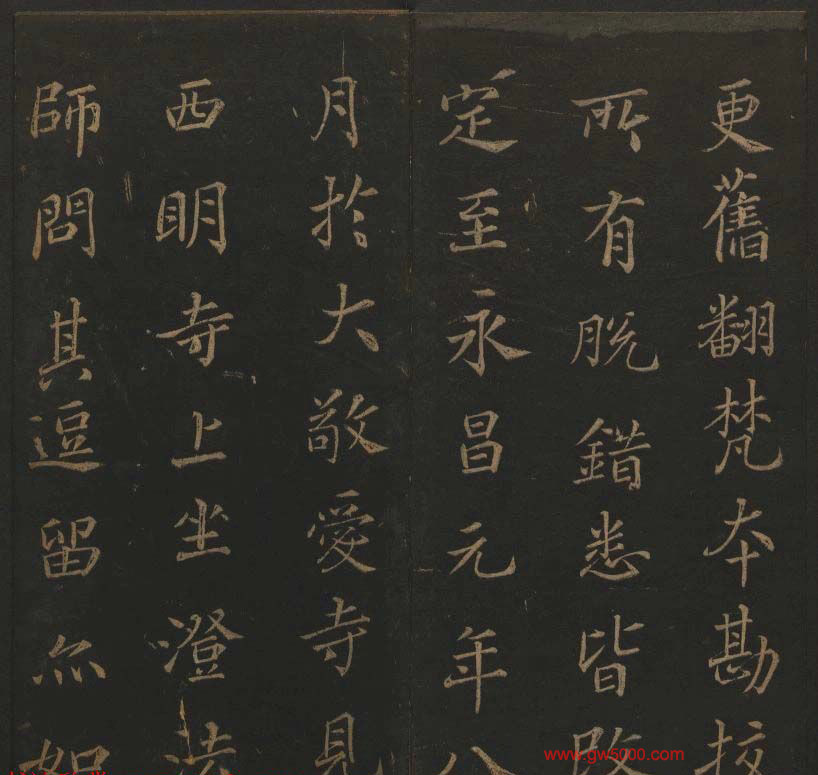 更舊翻梵本勘挍
所有脱錯悉皆改
定至永昌元年八
月於大敬愛寺見
西明寺上坐澄法
師問其逗留亦如
www.gw5000.com